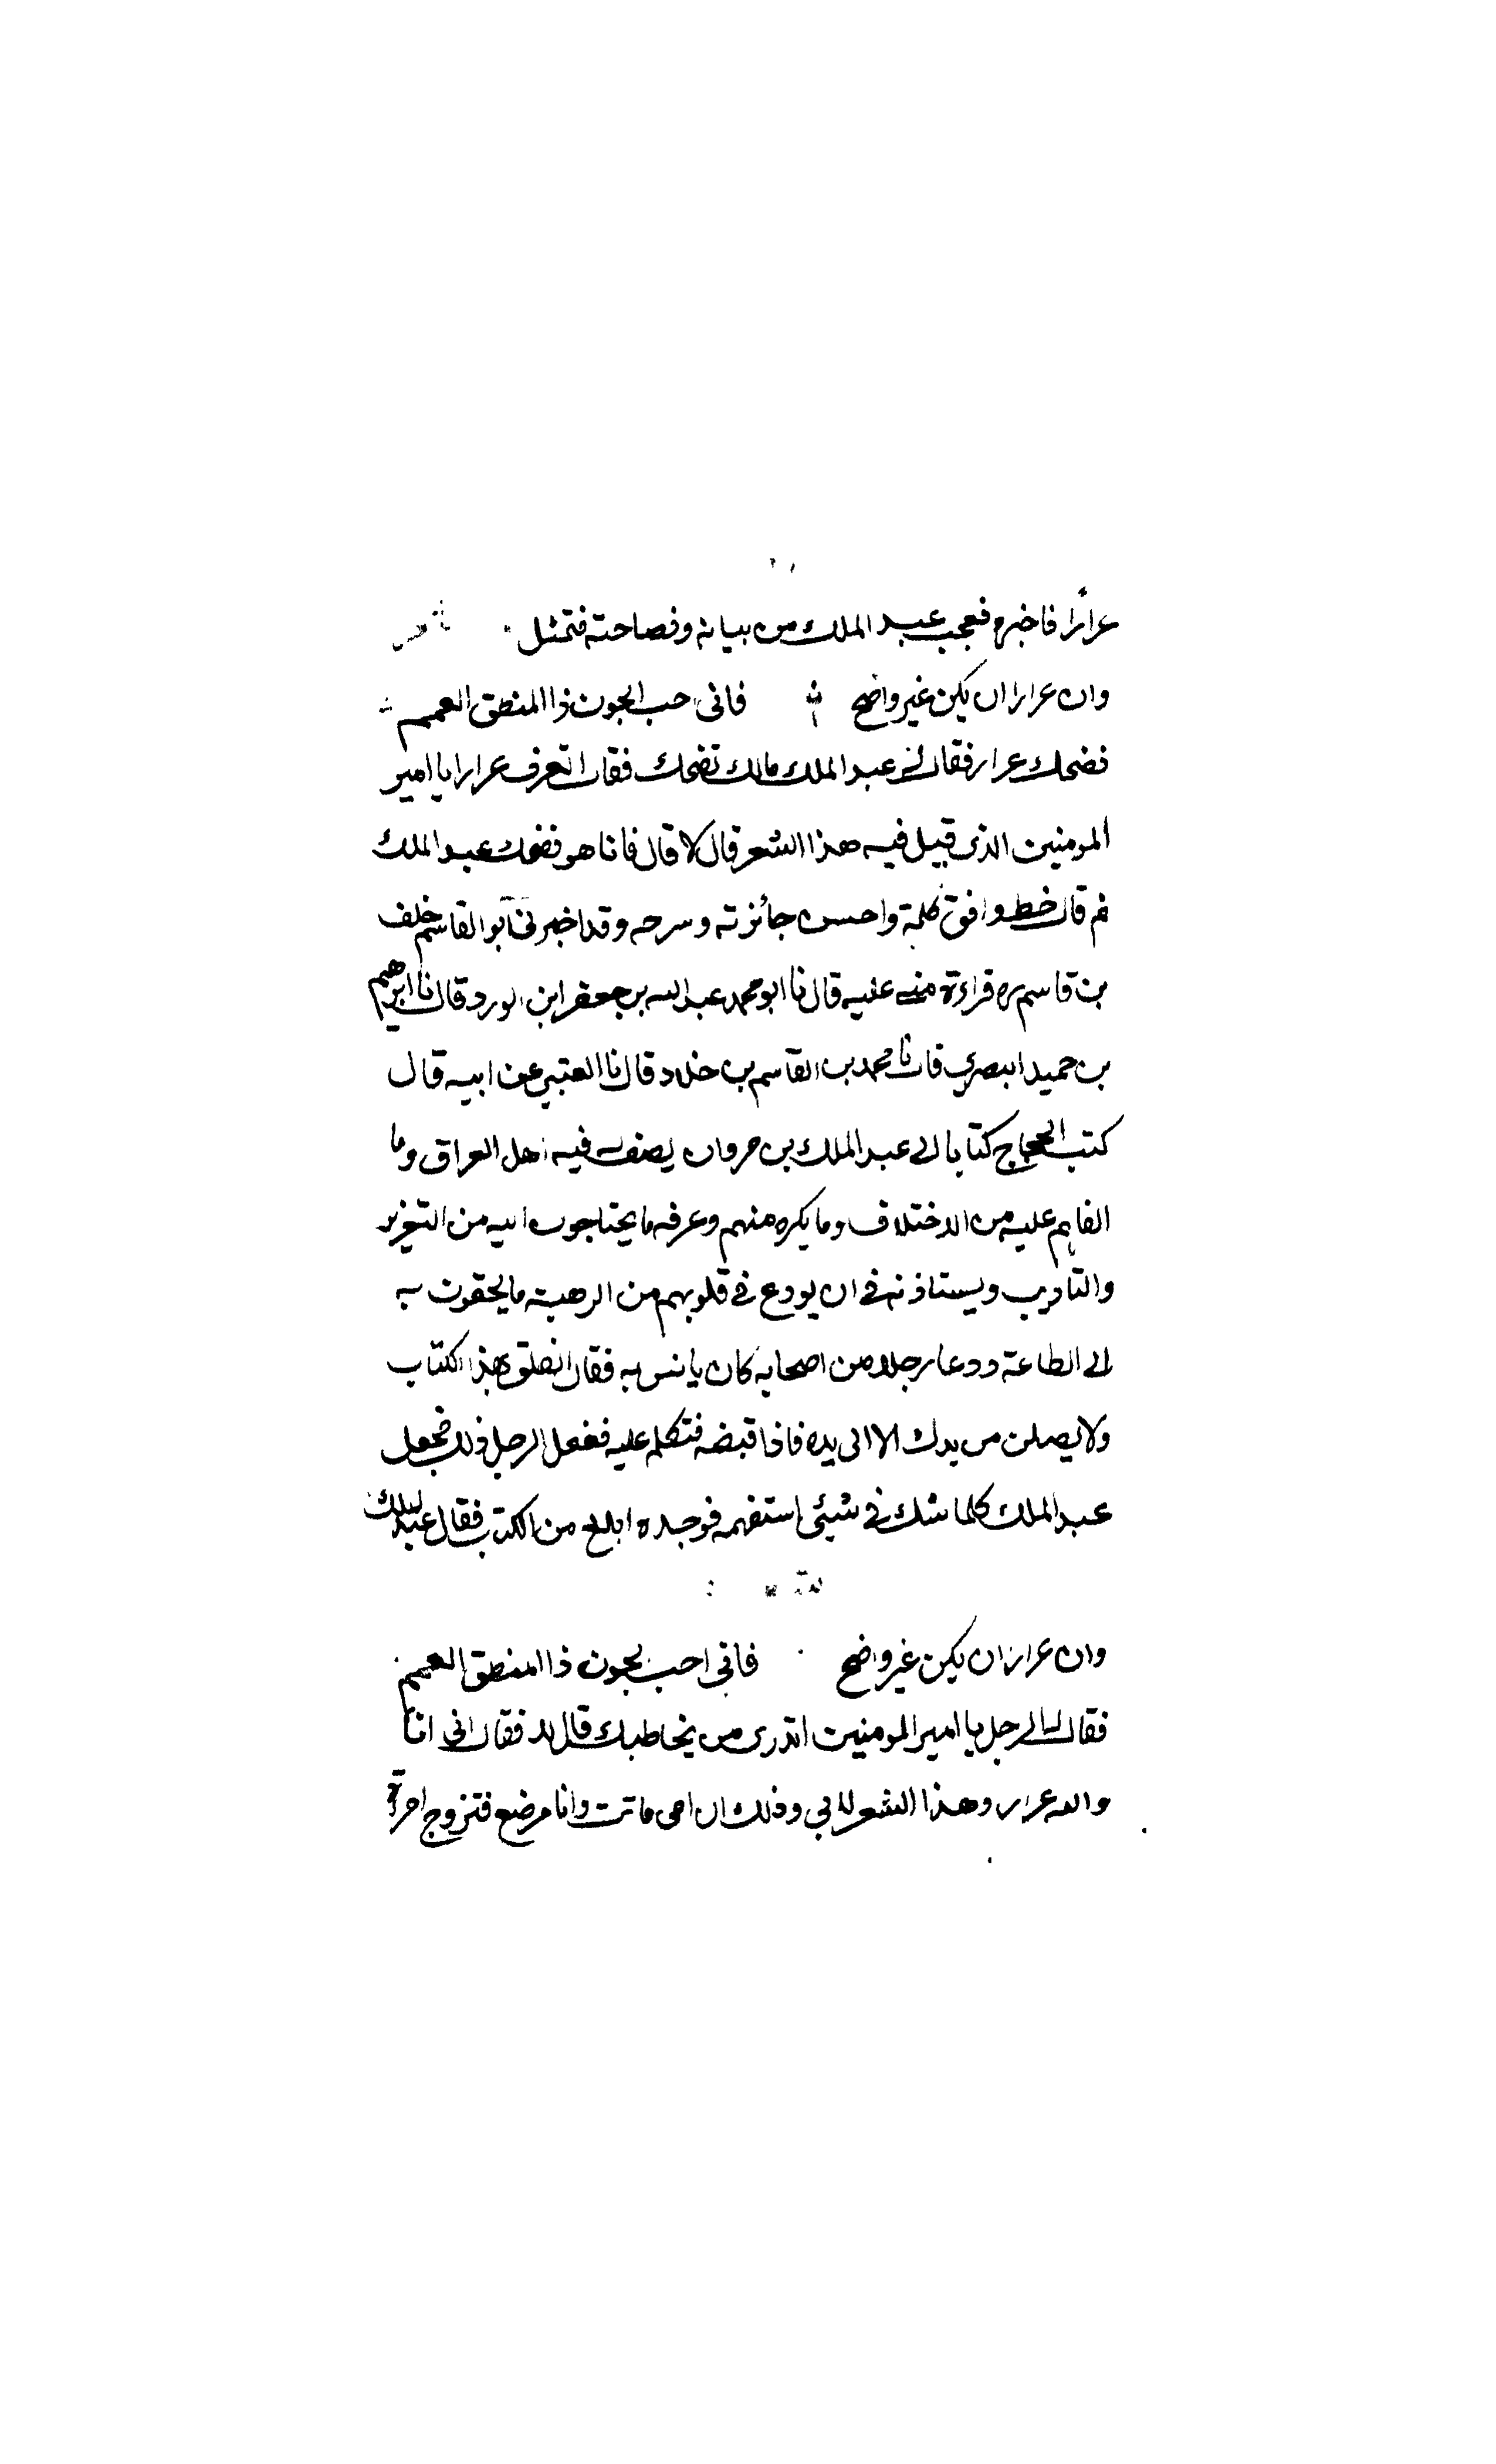 عرارًا فاخبره فعجب عبد الملك من بيانه وفصاحته فتمثل
وان عرارا ان يكن غير واضح فانى احب الجون ذا المنطق العمم
فضحك عرار فقال له عبد الملك مالك تضحك فقال اتعرف عرارا يا امير
المومنين الذى قيل فيه هذا الشعر قال لا قال فانا هو فضحك عبد الملك
ثم قال حظ وافق كلمة واحسن جائزته وسرحه وقد اخبرنى ابو القاسم خلف
بن قاسم ره قراءة منے عليه قال نا ابو محمد عبد الله بن جعفر ابن الورد قال نا ابرهيم
بن حميد البصري قال نا محمد بن القاسم بن خلاد قال نا العتبي عن ابيه قال
كتب الحجاج كتابا الى عبد الملك بن مروان يصف له فيه اهل العراق وما
الفاهم عليه من الاختلاف وما يكره منهم وعرفه ما يحتاجون اليه من التعزير
والتاديب ويستاذنه فى ان يودع فى قلوبهم من الرهبة ما يحقون به
الى الطاعة ودعا رجلا من اصحابه كان يانس به فقال انطلق بهذا الكتاب
ولا يصلن من يدك الا الى يده فاذا قبضه فتكلم عليه ففعل الرجل ذلك فجعل
عبد الملك كلما شك فى شيئى استفهمه فوجده ابلغ من الكتاب فقال عبد الملك
وان عرارا ان يكن غير واضح فانى احب الجون ذا المنطق العمم
فقال له الرجل يا امير المومنين اتدرى من يخاطبك قال لا فقال انى انا
والله عرار وهذا الشعر لابي وذلك ان امى ماتت وانا مرضع فتزوج امرآة